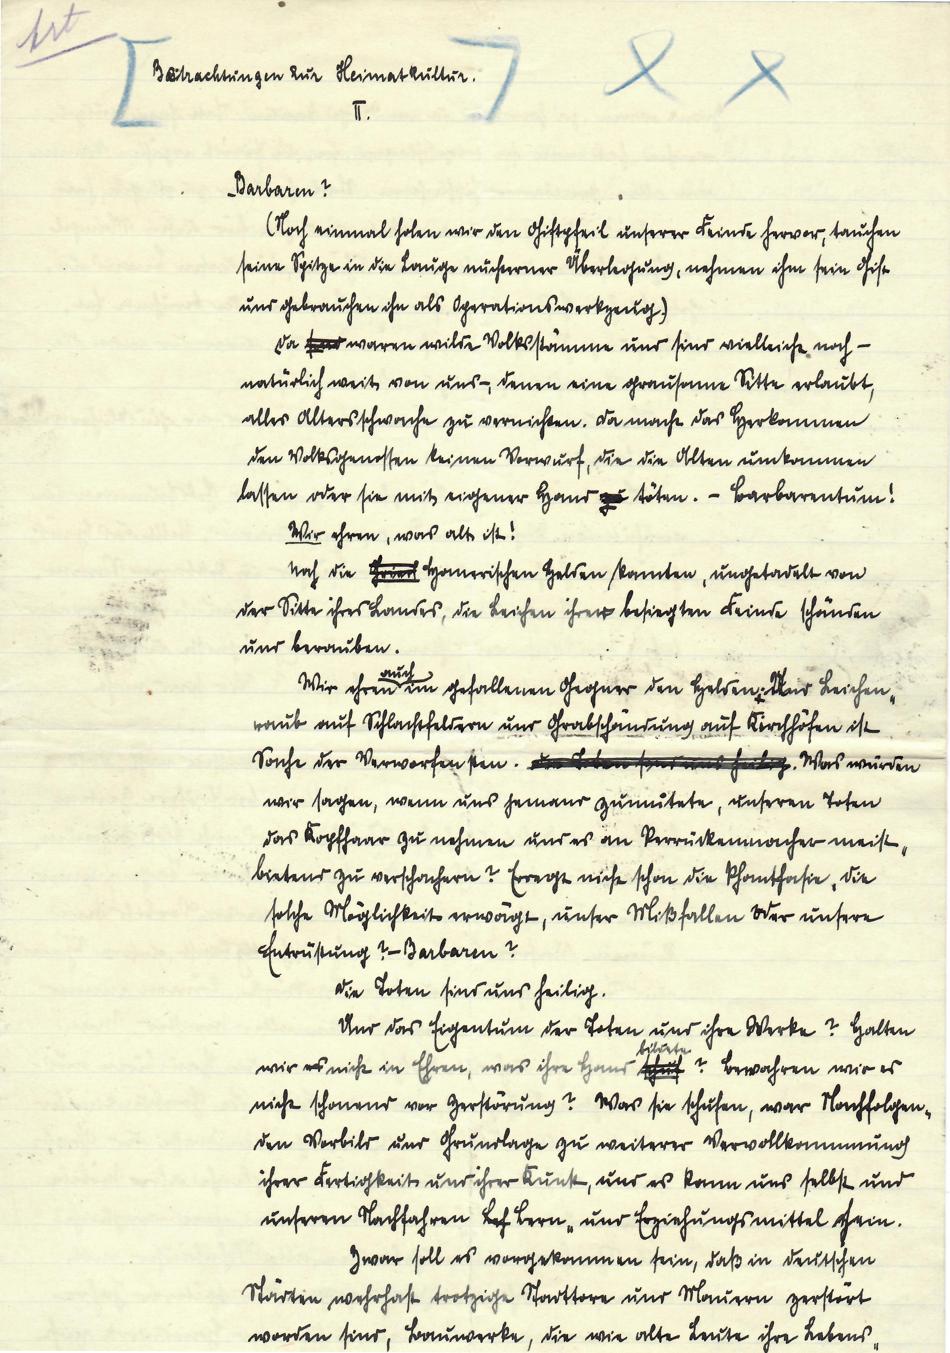 Art
Betrachtungen zur Heimatkultur.
II.
Barbaren?
(Noch einmal holen wir den Giftpfeil unserer Feinde hervor, tauchen
seine Spitze in die Lauge nüchterner Überlegung, nehmen ihm sein Gift
und gebrauchen ihn als Operationswerkzeug.)
Da waren wilde Volksstämme und sind vielleicht noch –
natürlich weit von uns –, denen eine grausame Sitte erlaubt,
alles Altersschwache zu vernichten. Da macht das Herkommen
den Volksgenossen keinen Vorwurf, die die Alten umkommen
lassen oder sie mit eigener Hand töten. – Barbarentum!
Wir ehren, was alt ist!
Noch die Homerischen Helden konnten, ungetadelt von
der Sitte ihres Landes, die Leichen ihrer besiegten Feinde schänden
und berauben.
Wir ehren auch im gefallenen Gegner den Helden. Und Leichen„
raub auf Schlachtfeldern und Grabschändung auf Kirchhöfen ist
Sache der Verworfensten. die Toten sind uns heilig. Was würden
wir sagen, wenn uns jemand zumutete, unseren Toten
das Kopfhaar zu nehmen und es an Perrückenmacher meist„
bietend zu verschachern? Erregt nicht schon die Phantasie, die
solche Möglichkeit erwägt, unser Mißfallen oder unsere
Entrüstung? – Barbaren?
Die Toten sind uns heilig.
Und das Eigentum der Toten und ihre Werke? Halten
wir es nicht in Ehren, was ihre Hand schuf bildete? Bewahren wir es
nicht schonend vor Zerstörung? Was sie schufen, war Nachfolgen„
den Vorbild und Grundlage zu weiterer Vervollkommnung
ihrer Fertigkeit und ihrer Kunst, und es kann uns selbst und
unseren Nachfahren Lern„ und Erziehungsmittel sein.
Zwar soll es vorgekommen sein, daß in deutschen
Städten wehrhaft trotzige Stadttore und Mauern zerstört
worden sind, Bauwerke, die wie alte Leute ihre Lebens„